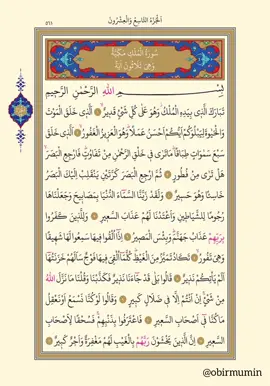 ٥٦١ اَلْجُزْءُ التَّاسِعُ وَالْعِشْرُونَ
سُورَةُ الْمُلْكِ مَكِّيَّةٌ
وَهِيَ ثَلَاثُونَ اٰيَةً
بِسْمِ اللّٰهِ الرَّحْمٰنِ الرَّحِيمِ
تَبَارَكَ الَّذِي بِيَدِهِ الْمُلْكُ وَهُوَ عَلٰى كُلِّ شَيْءٍ قَدِيرٌ ۝ اَلَّذِي خَلَقَ الْمَوْتَ
وَالْحَيٰوةَ لِيَبْلُوَكُمْ اَيُّكُمْ اَحْسَنُ عَمَلًا وَهُوَ الْعَزِيزُ الْغَفُورُ ۝ اَلَّذِي خَلَقَ
سَبْعَ سَمٰوَاتٍ طِبَاقًا مَا تَرٰى فِي خَلْقِ الرَّحْمٰنِ مِنْ تَفَاوُتٍ فَارْجِعِ الْبَصَرَ
هَلْ تَرٰى مِنْ فُطُورٍ ۝ ثُمَّ ارْجِعِ الْبَصَرَ كَرَّتَيْنِ يَنْقَلِبْ اِلَيْكَ الْبَصَرُ
خَاسِئًا وَهُوَ حَسِيرٌ ۝ وَلَقَدْ زَيَّنَّا السَّمَاءَ الدُّنْيَا بِمَصَابِيحَ وَجَعَلْنَاهَا
رُجُومًا لِلشَّيَاطِينِ وَاَعْتَدْنَا لَهُمْ عَذَابَ السَّعِيرِ ۝ وَلِلَّذِينَ كَفَرُوا
بِرَبِّهِمْ عَذَابُ جَهَنَّمَ وَبِئْسَ الْمَصِيرُ ۝ اِذَا اُلْقُوا فِيهَا سَمِعُوا لَهَا شَهِيقًا
وَهِيَ تَفُورُ ۝ تَكَادُ تَمَيَّزُ مِنَ الْغَيْظِ كُلَّمَا اُلْقِيَ فِيهَا فَوْجٌ سَاَلَهُمْ خَزَنَتُهَا
اَلَمْ يَاْتِكُمْ نَذِيرٌ ۝ قَالُوا بَلٰى قَدْ جَاءَنَا نَذِيرٌ فَكَذَّبْنَا وَقُلْنَا مَا نَزَّلَ اللّٰهُ
مِنْ شَيْءٍ اِنْ اَنْتُمْ اِلَّا فِي ضَلَالٍ كَبِيرٍ ۝ وَقَالُوا لَوْ كُنَّا نَسْمَعُ اَوْ نَعْقِلُ
مَا كُنَّا فِي اَصْحَابِ السَّعِيرِ ۝ فَاعْتَرَفُوا بِذَنْبِهِمْ فَسُحْقًا لِاَصْحَابِ
السَّعِيرِ ۝ اِنَّ الَّذِينَ يَخْشَوْنَ رَبَّهُمْ بِالْغَيْبِ لَهُمْ مَغْفِرَةٌ وَاَجْرٌ كَبِيرٌ ۝
@obirmumin